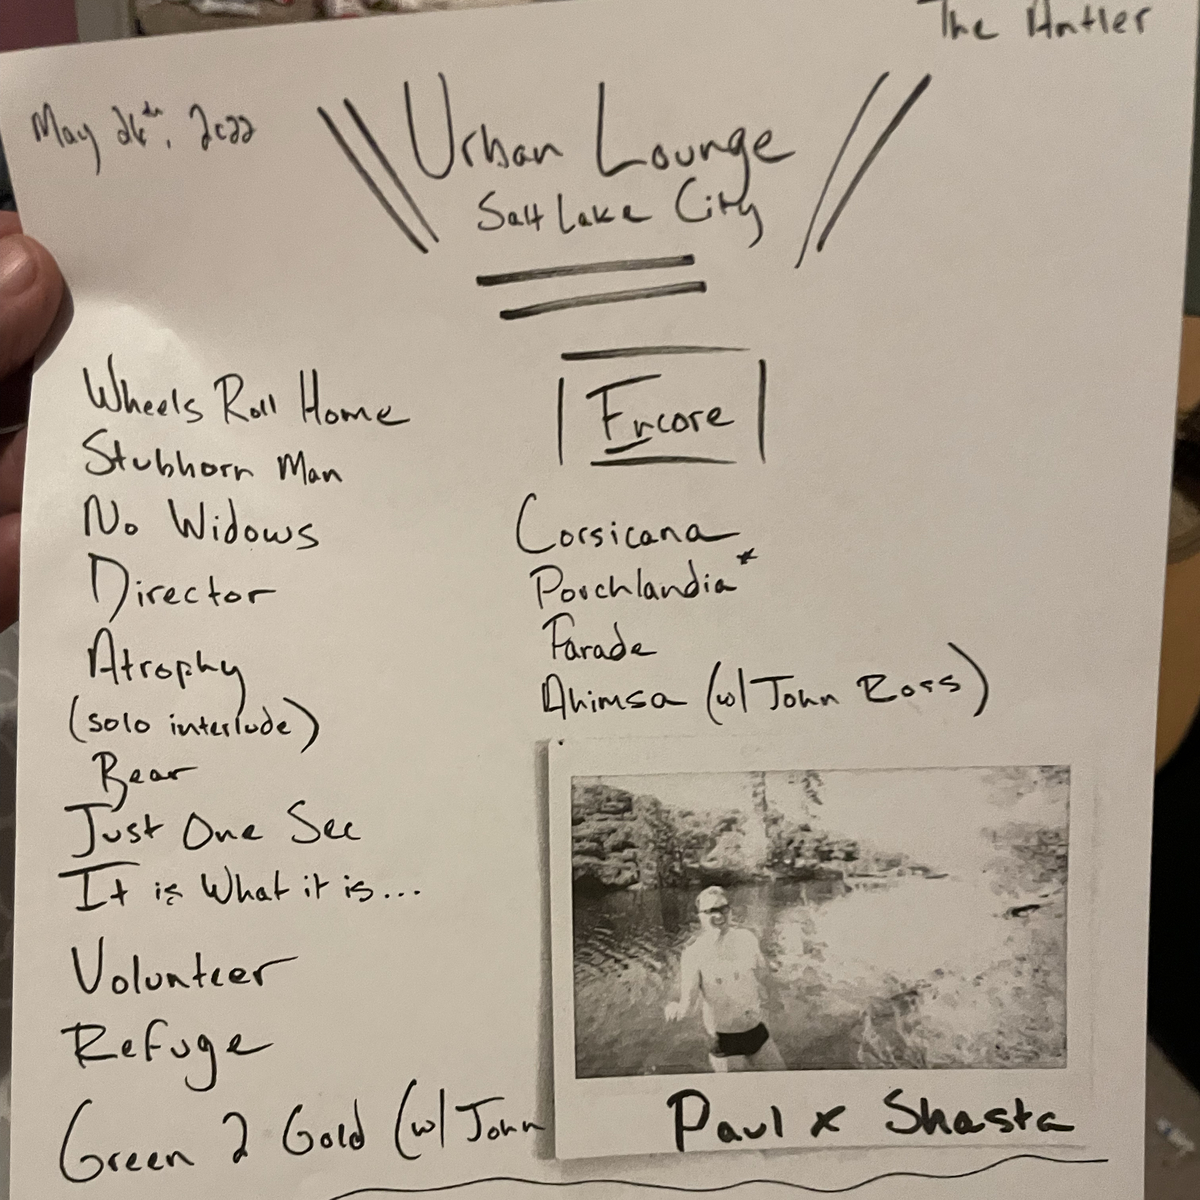 The Antler
May 26th, 2022
Urban Lounge
Salt Lake City
Wheels Roll Home
Stubborn Man
No Widows
Director
Atrophy
(solo interlude)
Bear
Just One Sec
It is What it is...
Volunteer
Refuge
Green 2 Gold (w/ John
Encore
Corsicana
Porchlandia*
Parade
Ahimsa (w/ John Ross)
Paul x Shasta